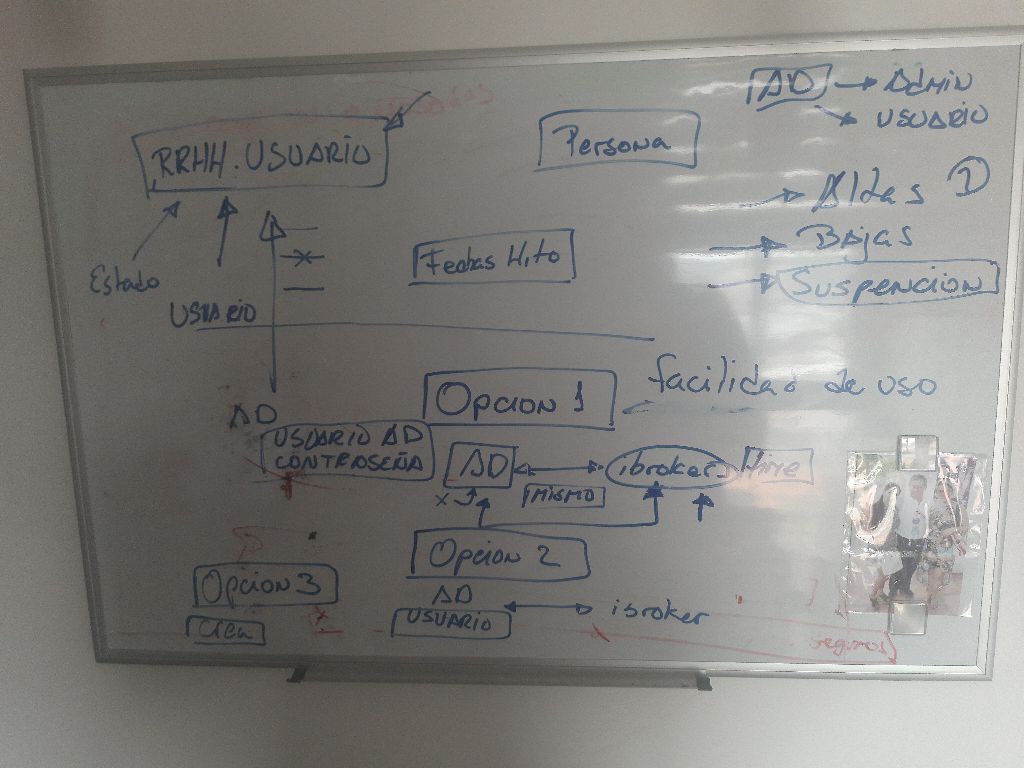 AD → ADMIN
USUARIO
RRHH. USUARIO
Persona
Altas 1
Bajas
Suspencion
Fechas Hito
Estado
USUARIO
Opcion 1
facilidad de uso
AD
USUARIO AD
CONTRASEÑA
AD
ibroker
MISMO
x
Opcion 2
AD
USUARIO
ibroker
Opcion 3
seguros